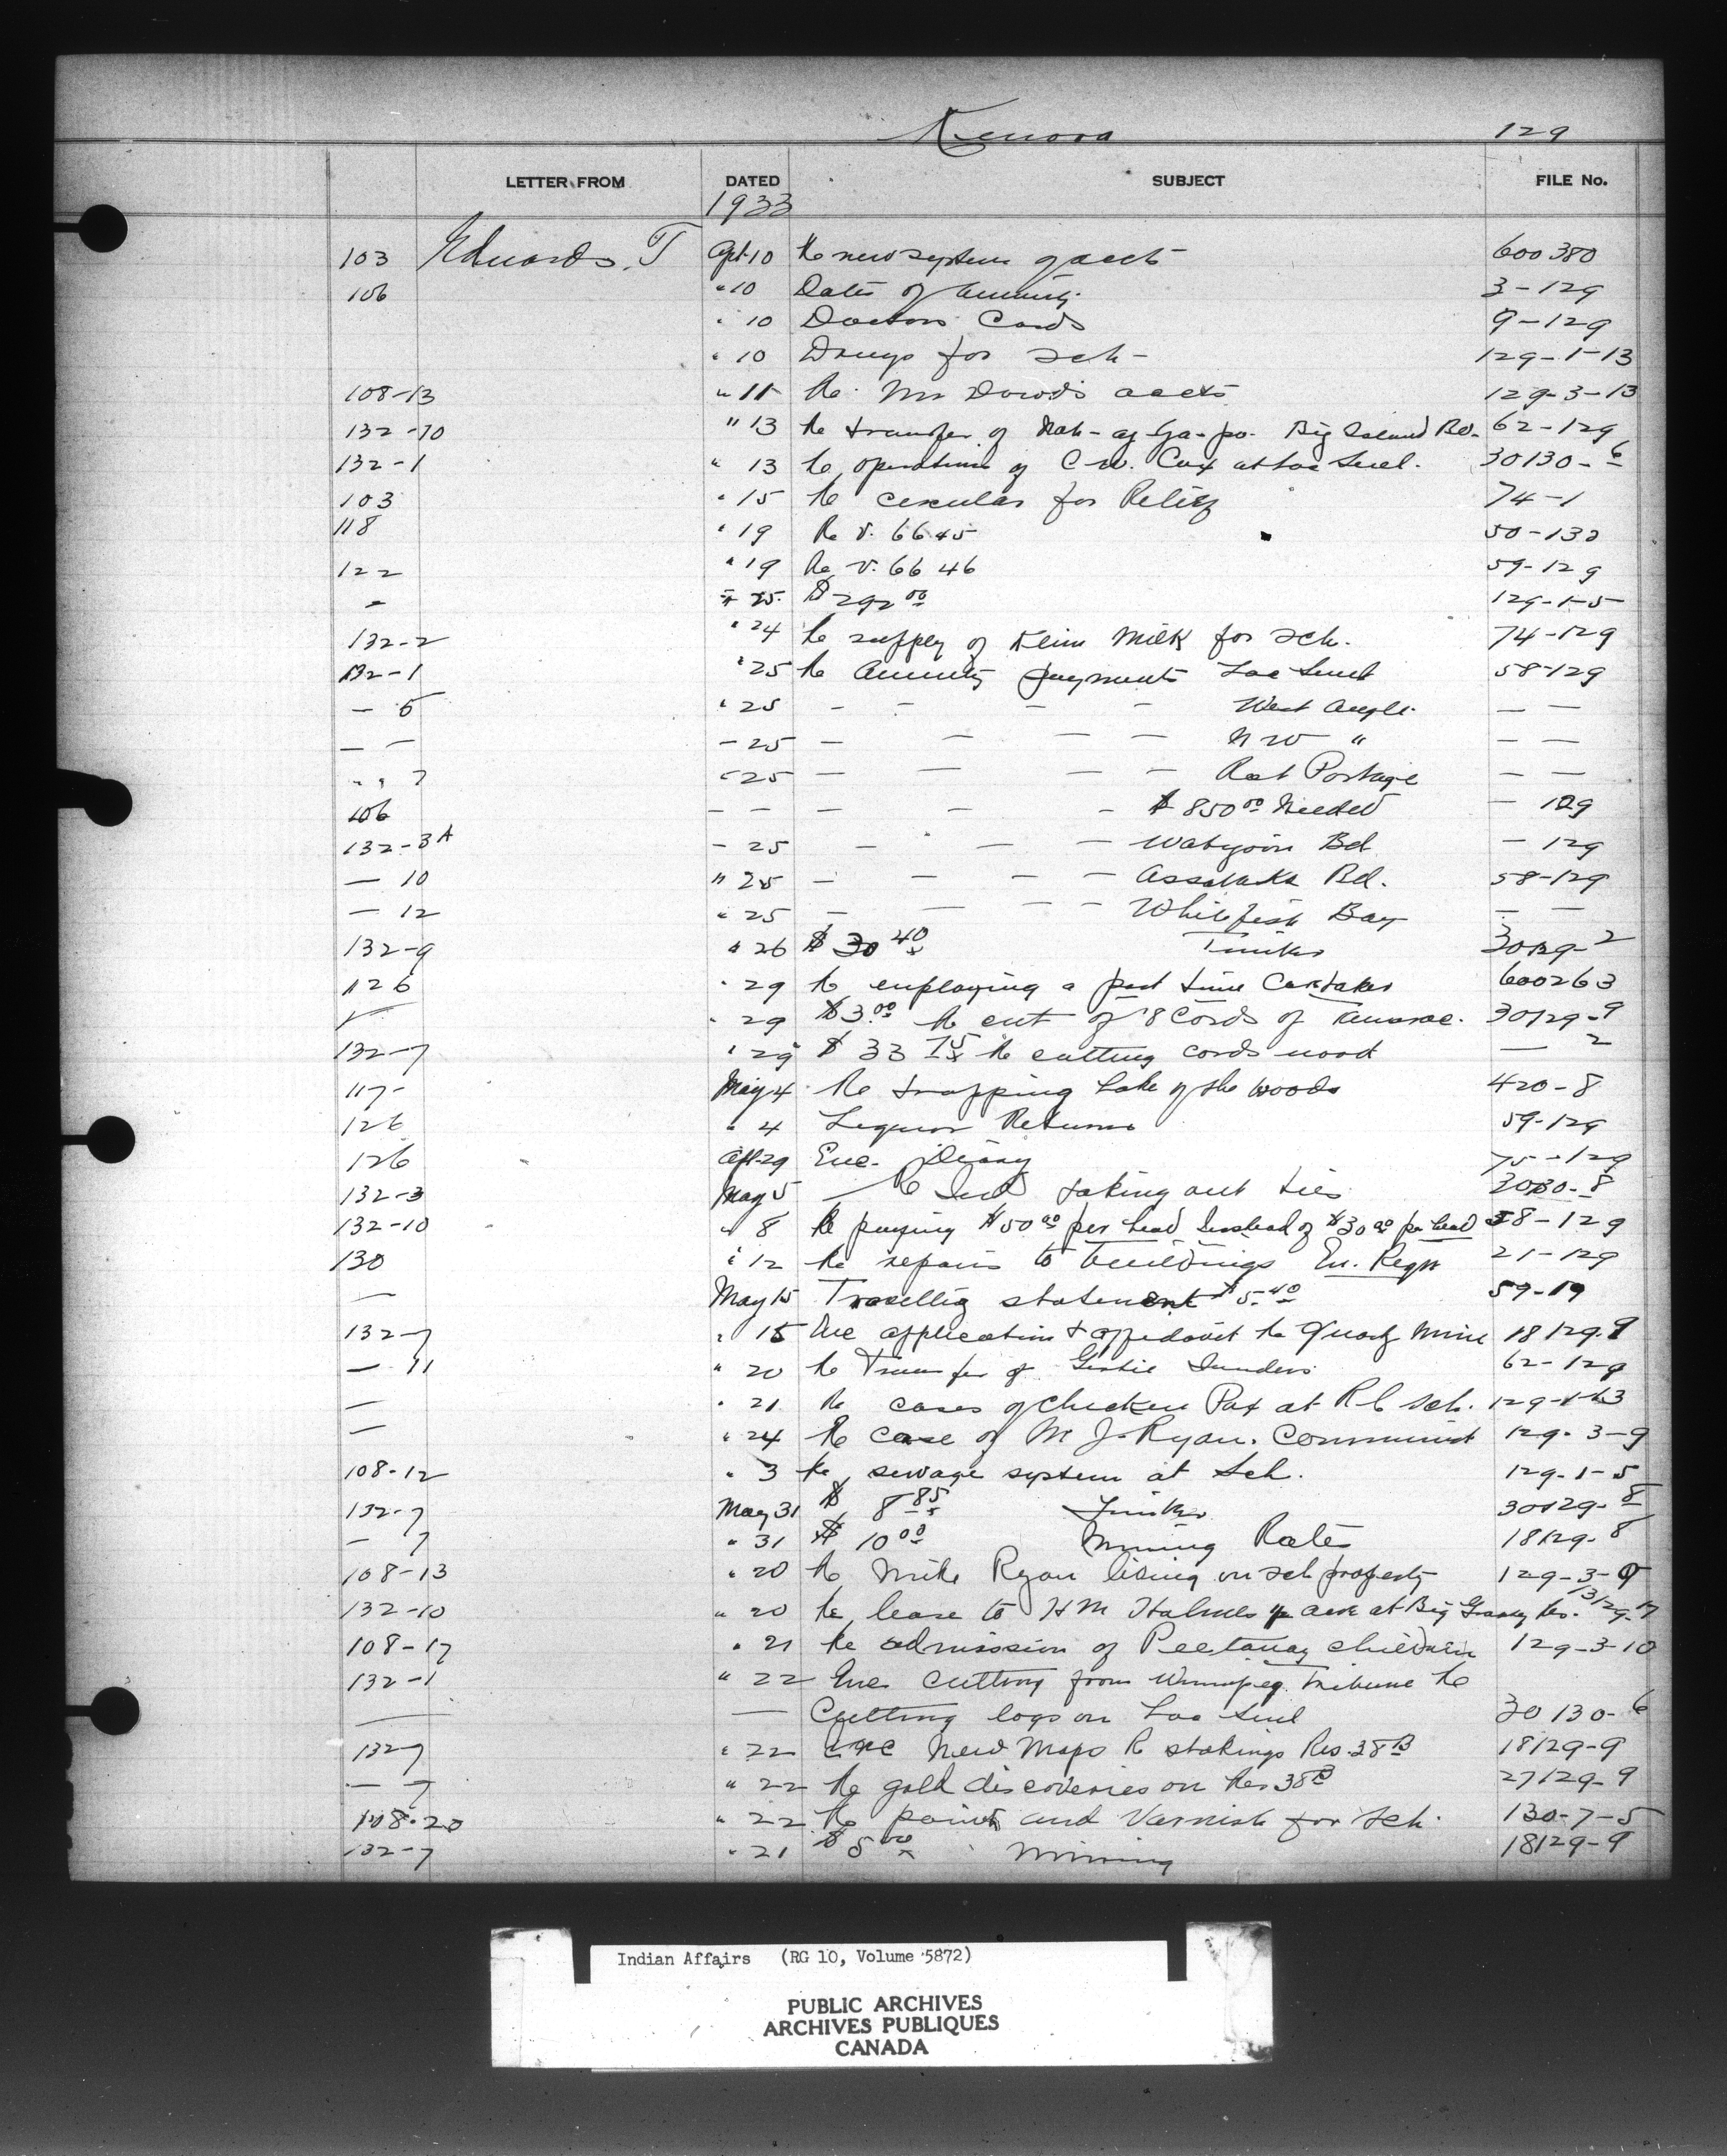 Kenora 129
LETTER FROM DATED SUBJECT FILE No.
1933
103 Edwards. T Apl 10 Re new system of accts 600380
106 " 10 Dates of Annuity 3-129
" 10 Doctors Cards 9-129
" 10 Drugs for sch- 129-1-13
108-13 " 11 Re Mr Dowds accts 129-3-13
132-10 " 13 Re transfer of Big Island Bd. 62-129
132-1 " 13 Re operations of C.W. Cox at Lac Seul. 30130-6
103 " 15 Re circular for Relief 74-1
118 " 19 Re v. 6645 50-132
122 " 19 Re v. 6646 59-129
- " 25 $292.00 129-1-5
132-2 " 24 Re supply of Klim Milk for sch. 74-129
132-1 " 25 Re Annuity payments Lac Seul 58-129
— 5 " 25 - - - - West Angle — —
— — - 25 — — — — N W " — —
" " 7 " 25 — — — — Rat Portage — —
106 — — — — - $850.00 Needed — 129
132-3A - 25 — - — — Wabigoon Bd — 129
— 10 " 25 — — — — Assabaska Bd. 58-129
— 12 " 25 — — — — Whitefish Bay — —
132-9 " 26 $30.40 Timber 30129-2
126 " 29 Re employing a part time Caretaker 600263
" 29 $3.00 Re cut of 8 Cords of Tamarac. 30129-9
132-7 " 29 $33.75 Re cutting cords wood — 2
117- May 4 Re trapping Lake of the Woods 420-8
126 " 4 Liquor Returns 59-129
126 Apl 29 Enc. Diary 75-129
132-3 May 5 Re Ind taking out ties 30130-8
132-10 " 8 Re paying $50.00 per head Instead of $30.00 per head 58-129
130 " 12 Re repairs to buildings En. Regn 21-129
— May 15 Travellig statement $5.40 59-19
132-7 " 15 Enc application & affidavit Re Quartz Mine 18129-9
— 11 " 20 Re Transfer of Gertie 62-129
— " 21 Re cases of Chicken Pox at R C sch. 129-1-13
— " 24 Re case of M J. Ryan. Communist 129-3-9
108-12 " 3 Re sewage system at Sch. 129-1-5
132-7 May 31 $8.85 Timber 30129-8
— 7 " 31 $10.00 Mining Rates 18129-8
108-13 " 20 Re Mike Ryan living on sch property 129-3-9
132-10 " 20 Re lease to H M Holmes acre at Big Grassy Res. 31129-17
108-17 " 21 Re admission of children 129-3-10
132-1 " 22 Enc Cutting from Winnipeg Tribune Re
— — Cutting logs on Lac Seul 30130-6
132-7 " 22 Enc New Maps R stakings Res. 38B 18129-9
— 7 " 22 Re gold discoveries on Res 38B 27129-9
108-20 " 22 Re paint and Varnish for Sch. 130-7-5
132-7 " 21 $5.00 Mining 18129-9
Indian Affairs (RG 10, Volume 5872)
PUBLIC ARCHIVES
ARCHIVES PUBLIQUES
CANADA